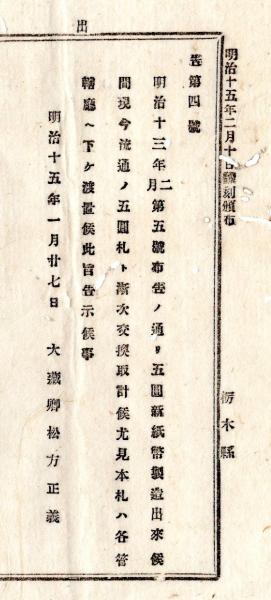 明治十五年二月十日飜刻頒布
栃木縣
告第四號
明治十三年二月第五號布告ノ通リ五圓新紙幣製造出來候
間現今流通ノ五圓札ト漸次交換取計候尤見本札ハ各管
轄廳ヘ下ケ渡置候此旨告示候事
明治十五年一月廿七日
大藏卿松方正義
出